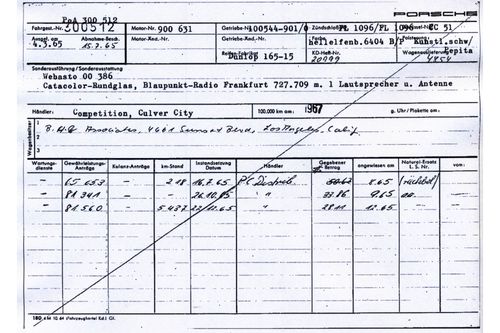 PoA 300 512
PORSCHE
Fahrgest.-Nr. 300512 Motor-Nr. 900 631 Getriebe-Nr. 100544-901/0 Zündschloß PL 1096/FL 1096 EC 51
Ausgel. am 4.3.65 Abnahme-Besch. 15.2.65 Motor-Änd.-Nr. Getriebe-Änd.-Nr. Farbe hellelfenb.6404 B/P Kunstl.schw/ Pepita
Reifen-Fabrikat Dunlop 165-15 KD-Heft-Nr. 20999 4854
Sonderausführung/Sonderausstattung
Webasto 00 386
Catacolor-Rundglas, Blaupunkt-Radio Frankfurt 727.709 m. 1 Lautsprecher u. Antenne
Händler: Competition, Culver City 100,000 km am: 1967 g. Uhr/Plakette am:
Wagenbesitzer B. H. Q Associates, 4661 Sunset Blvd, Los Angeles, Calif
Wartungs-dienste Gewährleistungs-Anträge Kulanz-Anträge km-Stand Instandsetzung Datum Händler Gegebener Betrag angewiesen am Natural-Ersatz L. S. Nr. vom:
- 65 653 - 218 16.7.65 P/C Distrib. 8.65
- 81 341 - 26.10.65 " 33.86 9.65
- 81 560 - 5 437 " 28.11 12.65
180 4 M 10.64 (Fahrzeugkartei Kd.) Gl.